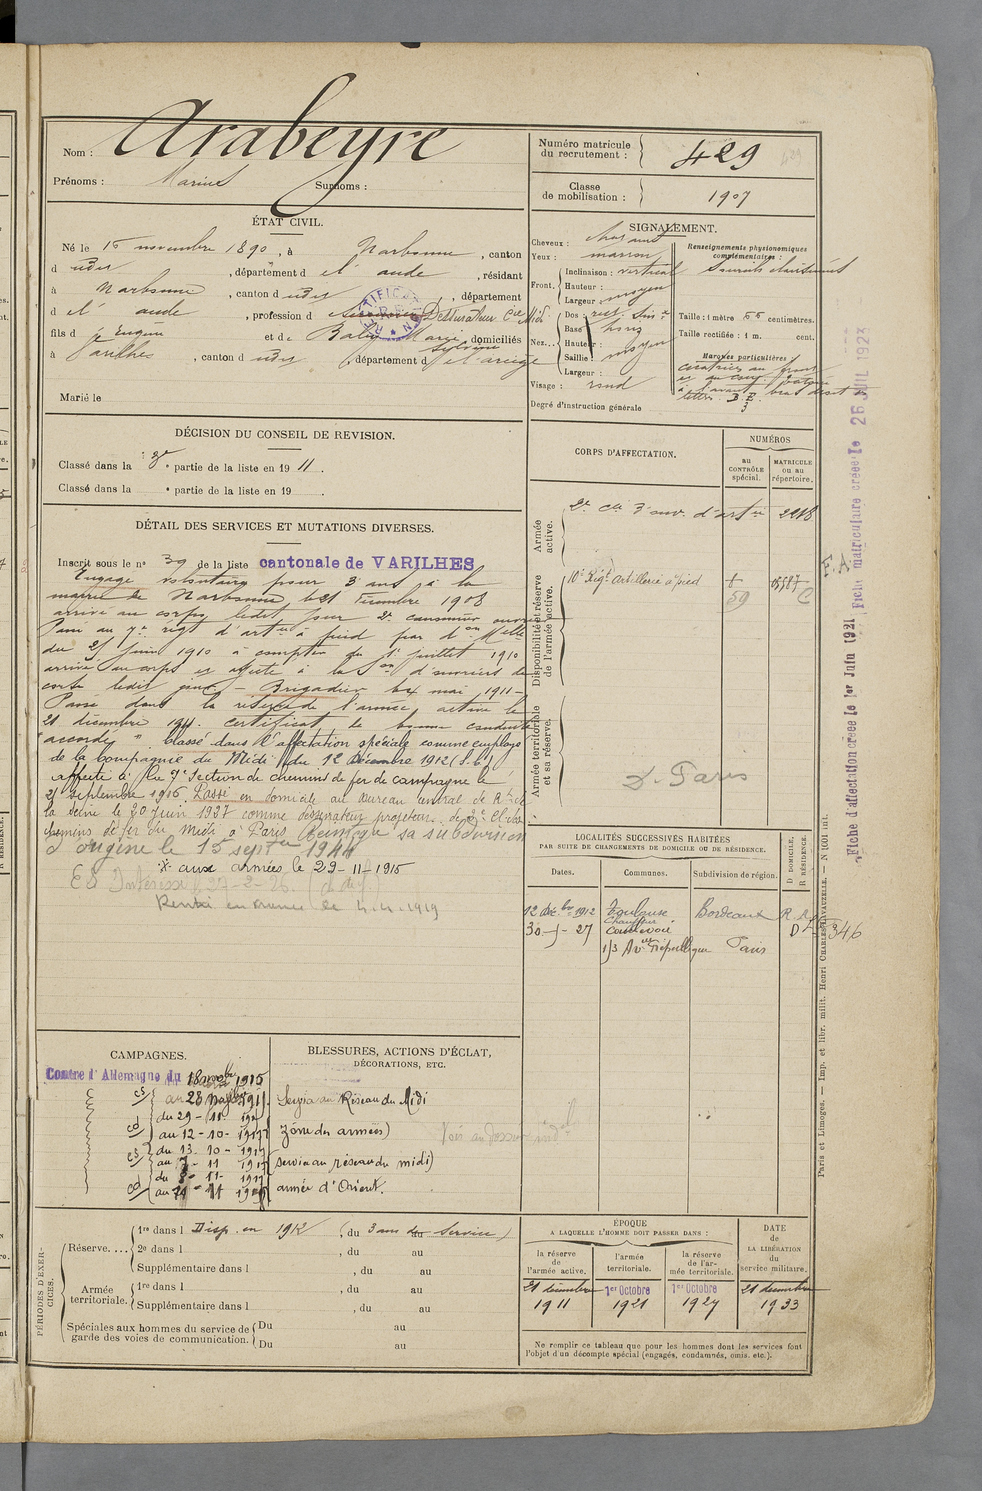 Nom : Arabeyre
Prénoms : Marius Surnoms :
Numéro matricule du recrutement : 429
Classe de mobilisation : 1907
ÉTAT CIVIL.
Né le 15 novembre 1890, à Narbonne, canton
d udes, département d l'aude, résidant
à Narbonne, canton d udes, département
d l'aude, profession d Dessinateur Cie Midi
fils d Eugène et de Marie domiciliés
à Varilhes, canton d udes, département d l'ariège
Marié le
SIGNALEMENT.
Cheveux : chatains
Yeux : marron
Front. Inclinaison : vertical
Hauteur :
Largeur : moyen
Nez... Dos : rect. Sin.
Base
Hauteur :
Saillie : moyen
Largeur :
Visage : rond
Degré d'instruction générale 3
Renseignements physionomiques complémentaires :
Sourcils clairsemés
Taille : 1 mètre 66 centimètres.
Taille rectifiée : 1 m. cent.
Marques particulières
cicatrices au front
bras droit
lettres B.E.
DÉCISION DU CONSEIL DE REVISION.
Classé dans la 3e partie de la liste en 1911.
Classé dans la e partie de la liste en 19 .
DÉTAIL DES SERVICES ET MUTATIONS DIVERSES.
Inscrit sous le no 39 de la liste cantonale de VARILHES
Engagé volontaire pour 3 ans à la
mairie de Narbonne le 21 décembre 1908
arrivé au corps ledit jour 2e canonnier
Passé au 7e régt d'artie à pied par don Melle
du 25 juin 1910 à compter du 1er juillet 1910
arrivé au corps et affecté à la son d'ouvriers
ledit jour – Brigadier le 4 mai 1911 –
Passé dans la réserve de l'armée active le
21 décembre 1911. certificat de bonne conduite
"accordé" Classé dans l'affectation spéciale comme employé
de la Compagnie du Midi du 12 Décembre 1912
affecté à la 7e Section de chemins de fer de campagne le
25 septembre 1915. Passé en domicile au Bureau central de Rt de
la Seine le 20 juin 1927 comme dessinateur projeteur de 2e Cl. des
chemins de fer du Midi à Paris. Réintégré sa subdivision
d'origine le 15 septre 1944
* aux armées le 29-11-1915
Rentré en France le 4.4.1919
CORPS D'AFFECTATION.
NUMÉROS
au CONTRÔLE spécial.
MATRICULE ou au répertoire.
Armée active.
2e Cie d'ouv. d'artie 2218
Disponibilité et réserve de l'armée active.
10e Régt Artillerie à pied
59
Armée territoriale et sa réserve.
D. Paris
LOCALITÉS SUCCESSIVES HABITÉES
PAR SUITE DE CHANGEMENTS DE DOMICILE OU DE RÉSIDENCE.
Dates. Communes. Subdivision de région. D DOMICILE, R RÉSIDENCE.
12 déc.bre 1912 Toulouse Bordeaux R
Courbevoie D
Avue République Paris
346
F.A.
Fiche d'affectation créée le 1er Juin 1921
Fiche matriculaire créée le
Paris et Limoges. — Imp. et libr. milit. Henri CHARLES-LAVAUZELLE.
CAMPAGNES.
Contre l'Allemagne du 18 novbre 1915
au 28
cs
du 29 - 11
cd au 12-10-1917
cs du 13-10-1917
au 7-11 1917
du 8-11-1917
cd au
BLESSURES, ACTIONS D'ÉCLAT,
DÉCORATIONS, ETC.
Servia au Réseau du Midi
Zône des armées)
(servia au réseau du midi)
armée d'Orient.
PÉRIODES D'EXERCICES.
Réserve.... 1re dans l Disp. en 1912 (du 3 ans de Service)
2e dans l , du au
Supplémentaire dans l , du au
Armée territoriale. 1re dans l , du au
Supplémentaire dans l , du au
Spéciales aux hommes du service de garde des voies de communication. Du au
Du au
ÉPOQUE
A LAQUELLE L'HOMME DOIT PASSER DANS :
la réserve de l'armée active.
l'armée territoriale.
la réserve de l'armée territoriale.
DATE de LA LIBÉRATION du service militaire.
21 décembre 1911
1er Octobre 1921
1er Octobre 1927
21 décembre 1933
Ne remplir ce tableau que pour les hommes dont les services font
l'objet d'un décompte spécial (engagés, condamnés, omis, etc.).